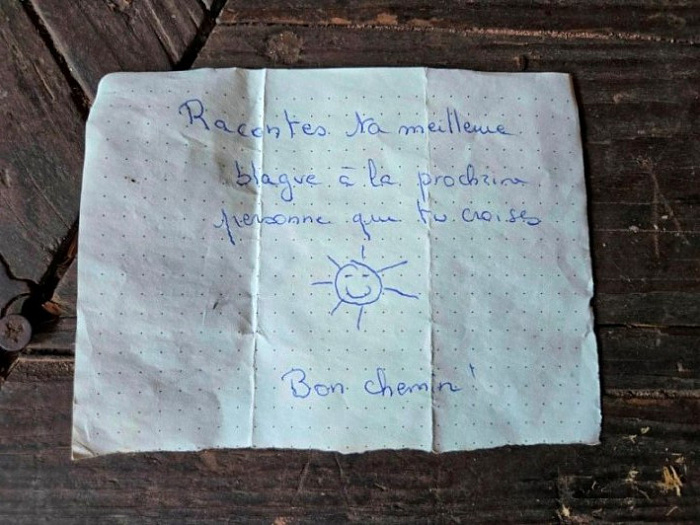 Racontes ta meilleure
blague à la prochaine
personne que tu croises
Bon chemin !